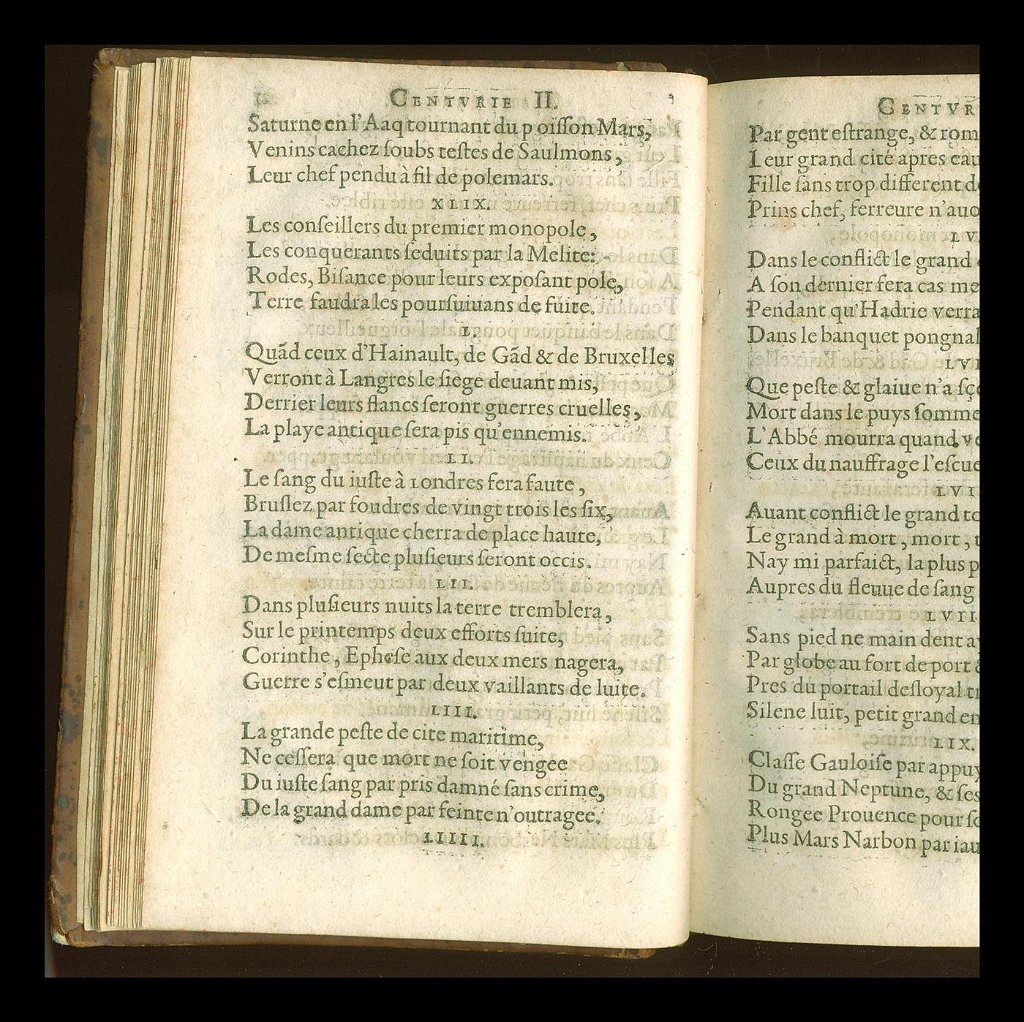 CENTVRIE II.
Saturne en l'Aaq tournant du p oisson Mars,
Venins cachez soubs testes de Saulmons,
Leur chef pendu à fil de polemars.
XLIX.
Les conseillers du premier monopole,
Les conquerants seduits par la Melite:
Rodes, Bisance pour leurs exposant pole,
Terre faudra les poursuiuans de fuite.
L.
Quãd ceux d'Hainault, de Gãd & de Bruxelles
Verront à Langres le siege deuant mis,
Derrier leurs flancs seront guerres cruelles,
La playe antique sera pis qu'ennemis.
LI.
Le sang du iuste à Londres fera faute,
Bruslez par foudres de vingt trois les six,
La dame antique cherra de place haute,
De mesme secte plusieurs seront occis.
LII.
Dans plusieurs nuits la terre tremblera,
Sur le printemps deux efforts suite,
Corinthe, Ephese aux deux mers nagera,
Guerre s'esmeut par deux vaillants de luite.
LIII.
La grande peste de cite maritime,
Ne cessera que mort ne soit vengee
Du iuste sang par pris damné sans crime,
De la grand dame par feinte n'outragee.
LIIII.
CENTVR
Par gent estrange, & rom
Leur grand cité apres eau
Fille sans trop different d
Prins chef, ferreure n'auo
LV.
Dans le conflict le grand
A son dernier fera cas me
Pendant qu'Hadrie verra
Dans le banquet pongnal
LVI
Que peste & glaiue n'a sçe
Mort dans le puys somme
L'Abbé mourra quand ve
Ceux du nauffrage l'escue
LVII
Auant conflict le grand to
Le grand à mort, mort, t
Nay mi parfaict, la plus p
Aupres du fleuue de sang
LVII
Sans pied ne main dent ay
Par globe au fort de port &
Pres du portail desloyal tr
Silene luit, petit grand em
LIX.
Classe Gauloise par appuy
Du grand Neptune, & ses
Rongee Prouence pour so
Plus Mars Narbon par iau